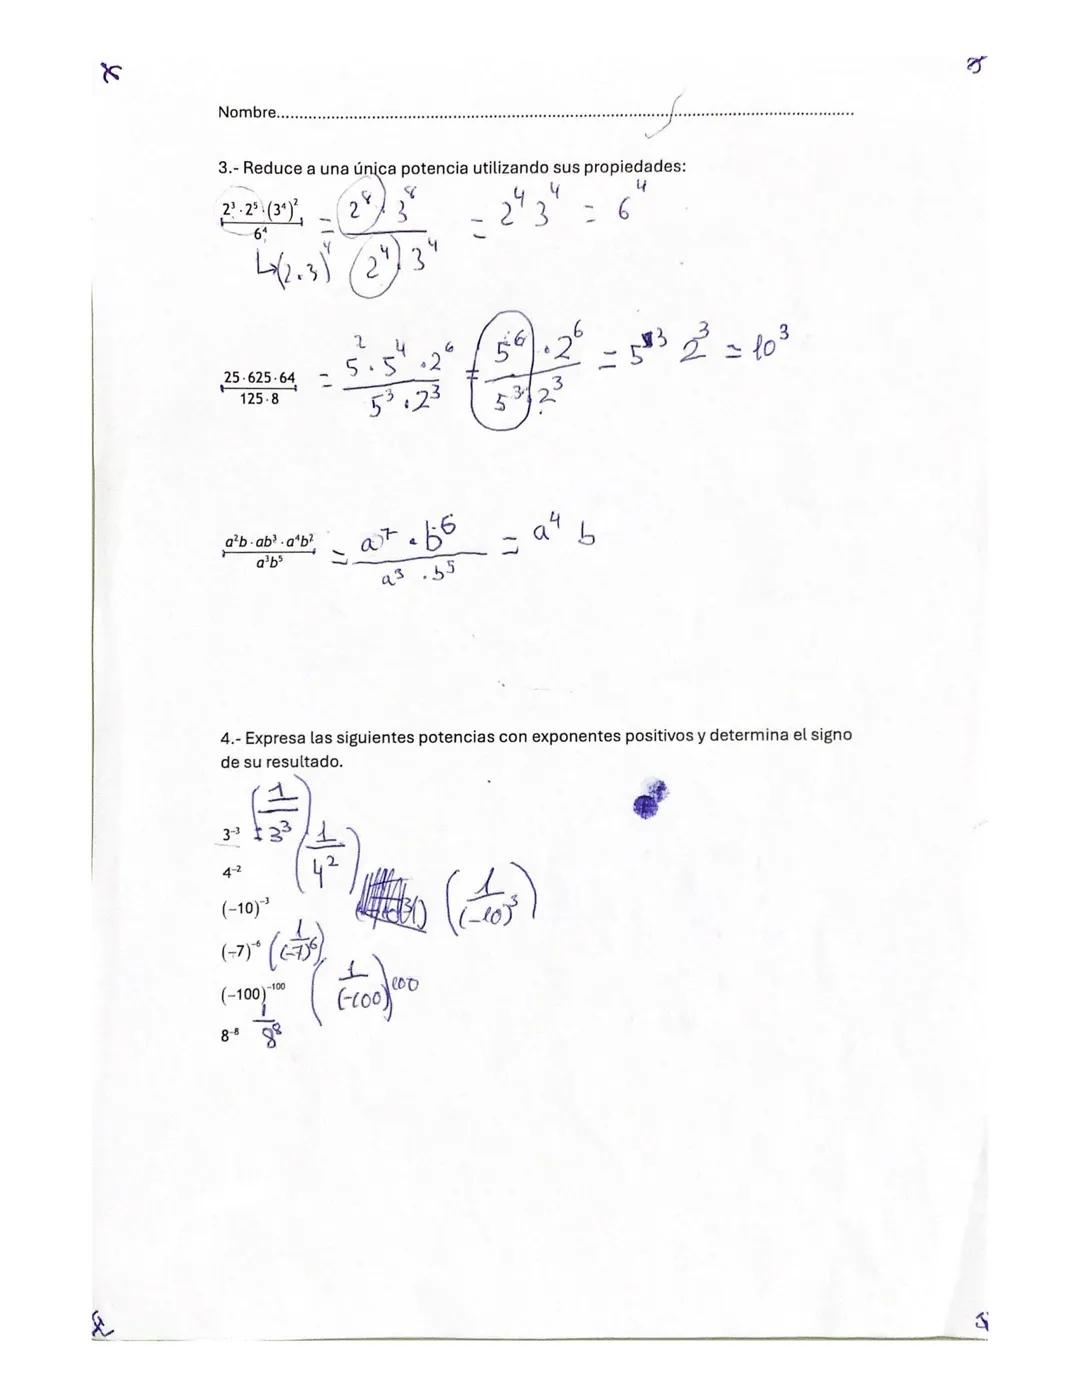 Nombre................................................................................................................................
3.- Reduce a una única potencia utilizando sus propiedades:
2³·2⁵·(3⁴)² / 6⁴ = 2⁸·3⁸ / 2⁴·3⁴ = 2⁴3⁴ = 6⁴
↳(2.3)⁴
25·625·64 / 125·8 = 5²·5⁴·2⁶ / 5³·2³ = 5⁶·2⁶ / 5³·2³ = 5³ 2³ = 10³
a²b·ab³·a⁴b² / a³b⁵ = a⁷·b⁶ / a³·b⁵ = a⁴ b
4.- Expresa las siguientes potencias con exponentes positivos y determina el signo
de su resultado.
3⁻³ (1/3³)
4⁻² (1/4²)
(−10)⁻³ (1/(-10)³)
(−7)⁻⁶ (1/(-7)⁶)
(−100)⁻¹⁰⁰ (1/(-100))¹⁰⁰
8⁻⁸ 1/8⁸